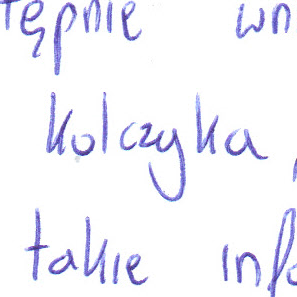 tępnie wn
kolczyka,
takie inf